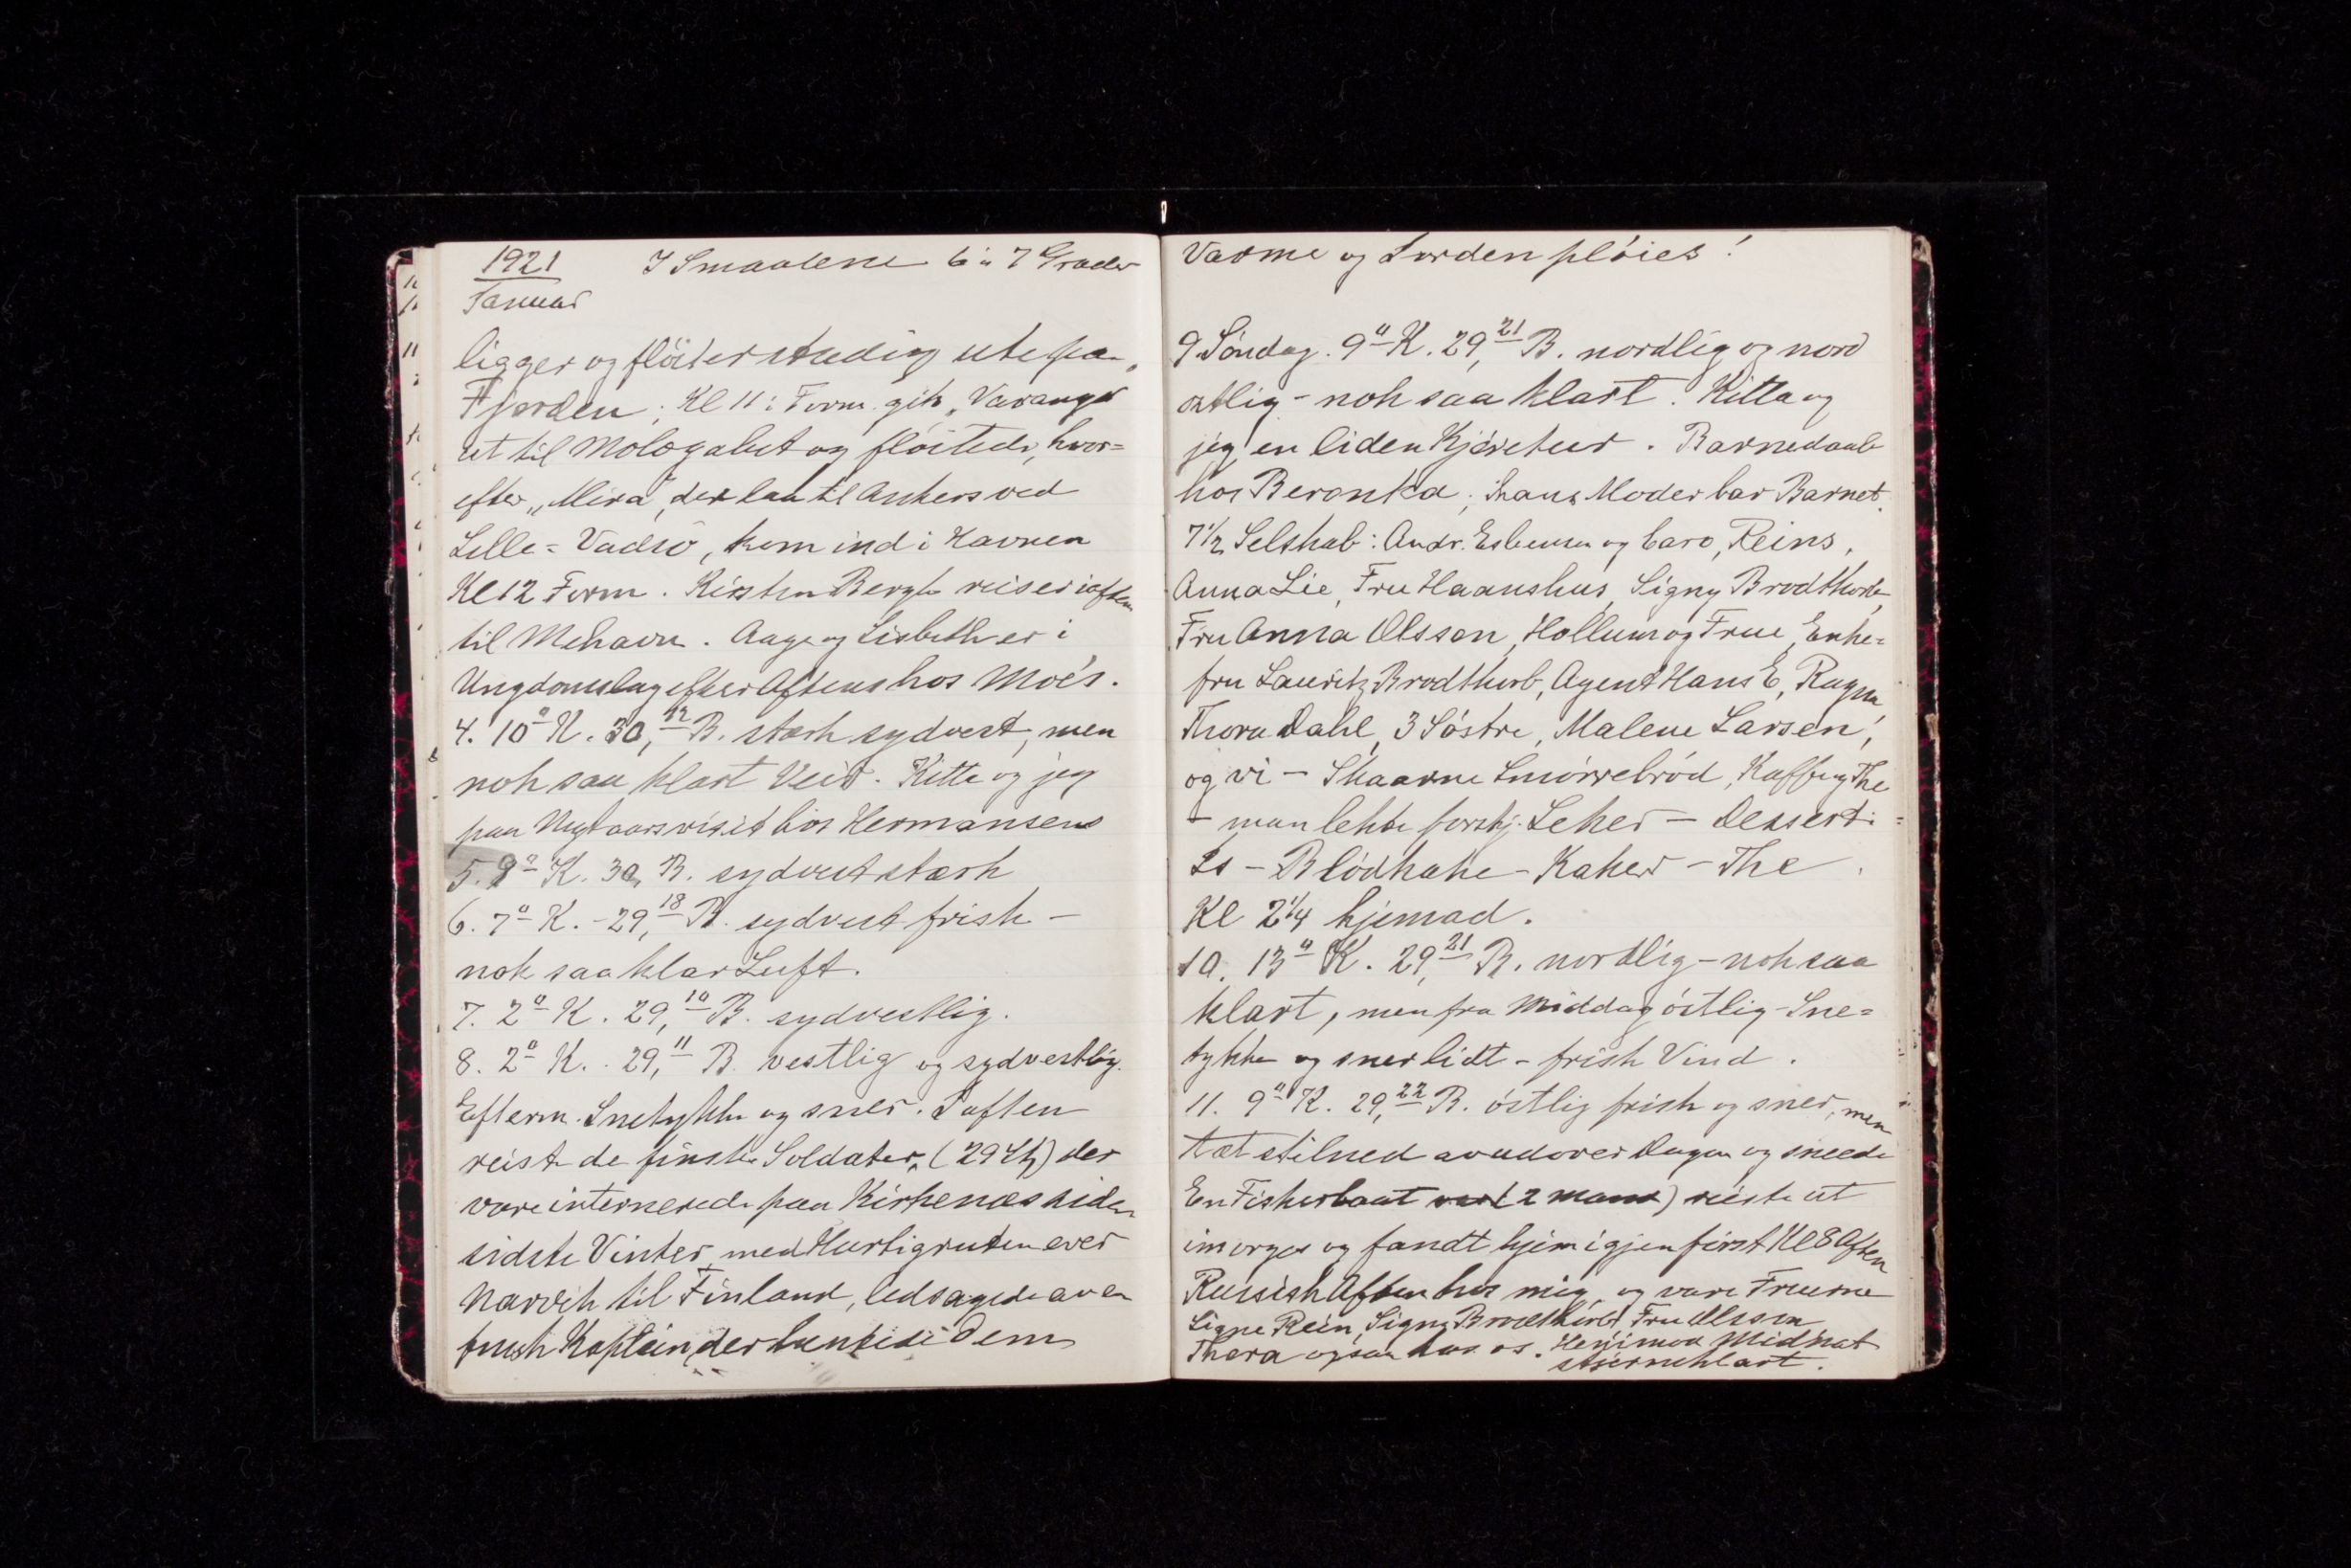 1921 I Smaalene 6 à 7 Grader
Januar
ligger og fløiter stadig ute paa
Fjorden. Kl 11 i Form. gik „Varanger
ut til Mologabet og fløitede, hvor=
efter „Mira", der laa til Ankers ved
Lille=Vadsø, kom ind i Havnen
Kl 12 Form. Kirsten Bergh reiser iaften
til Mehavn. Aage og Lisbeth er i
Ungdomslag efter Aftens hos Moe's.
4. 10° K. 30,12 B. stærk sydvest, men
nok saa klart Veir. Kitta og jeg
paa Nytaarsvisit hos Hermansens
5. 9° K. 30, B. sydvest stærk
6. 7° K. - 29,18 B. sydvest frisk -
nok saa klar Luft.
7. 2° K. 29,10 B. sydvestlig.
8. 2° K. 29,11 B. vestlig og sydvestlig.
Efterm. Snetykke og sner. Iaften
reiste de finske Soldater, (29 Stk) der
vare internerede paa Kirkenæs siden
sidste Vinter, med Hurtigruten over
Narvik til Finland, ledsagede av en
finsk Kaptein, der
Varme og Jorden pløies!
9 Søndag. 9° K. 29,21 B. nordlig og nord
ostlig - nok saa klart. Kitta og
jeg en liden Kjøretur. Barnedaab
hos Beronka; hans Moder bar Barnet.
7½ Selskab: Andr. Esbensen og Caro, Reins,
Anna Lie, Fru Haanshus, Signy Brodtkorb,
Fru Anna Olsson, Hollum og Frue, Enke=
fru Lauritz Brodtkorb, Agent Hans E, Ragna
Thora Dahl, 3 Søstre, Malene Larsen,
og vi - Skaarne Smørrebrød, Kaffe og The
- man lekte forskj. Leker - Dessert:
Is - Blødkake - Kaker - The.
Kl 2¼ hjemad.
10. 13° K. 29,21 B. nordlig - nok saa
klart, men fra Middag østlig - Sne=
tykke og sner lidt - frisk Vind.
11. 9° K. 29,22 B. østlig frisk og sner, men
tæt stilned av udover Dagen og sneede
En Fiskerbaat (2 mand) reiste ut
imorges og fandt hjem igjen først Kl 8 Aften
Russisk Aften hos mig, og vare Fruerne
Signe Rein, Signy Brodtkorb, Fru Olsson
Thora ogsaa hos os. Henimod Midnat
stjerneklart.